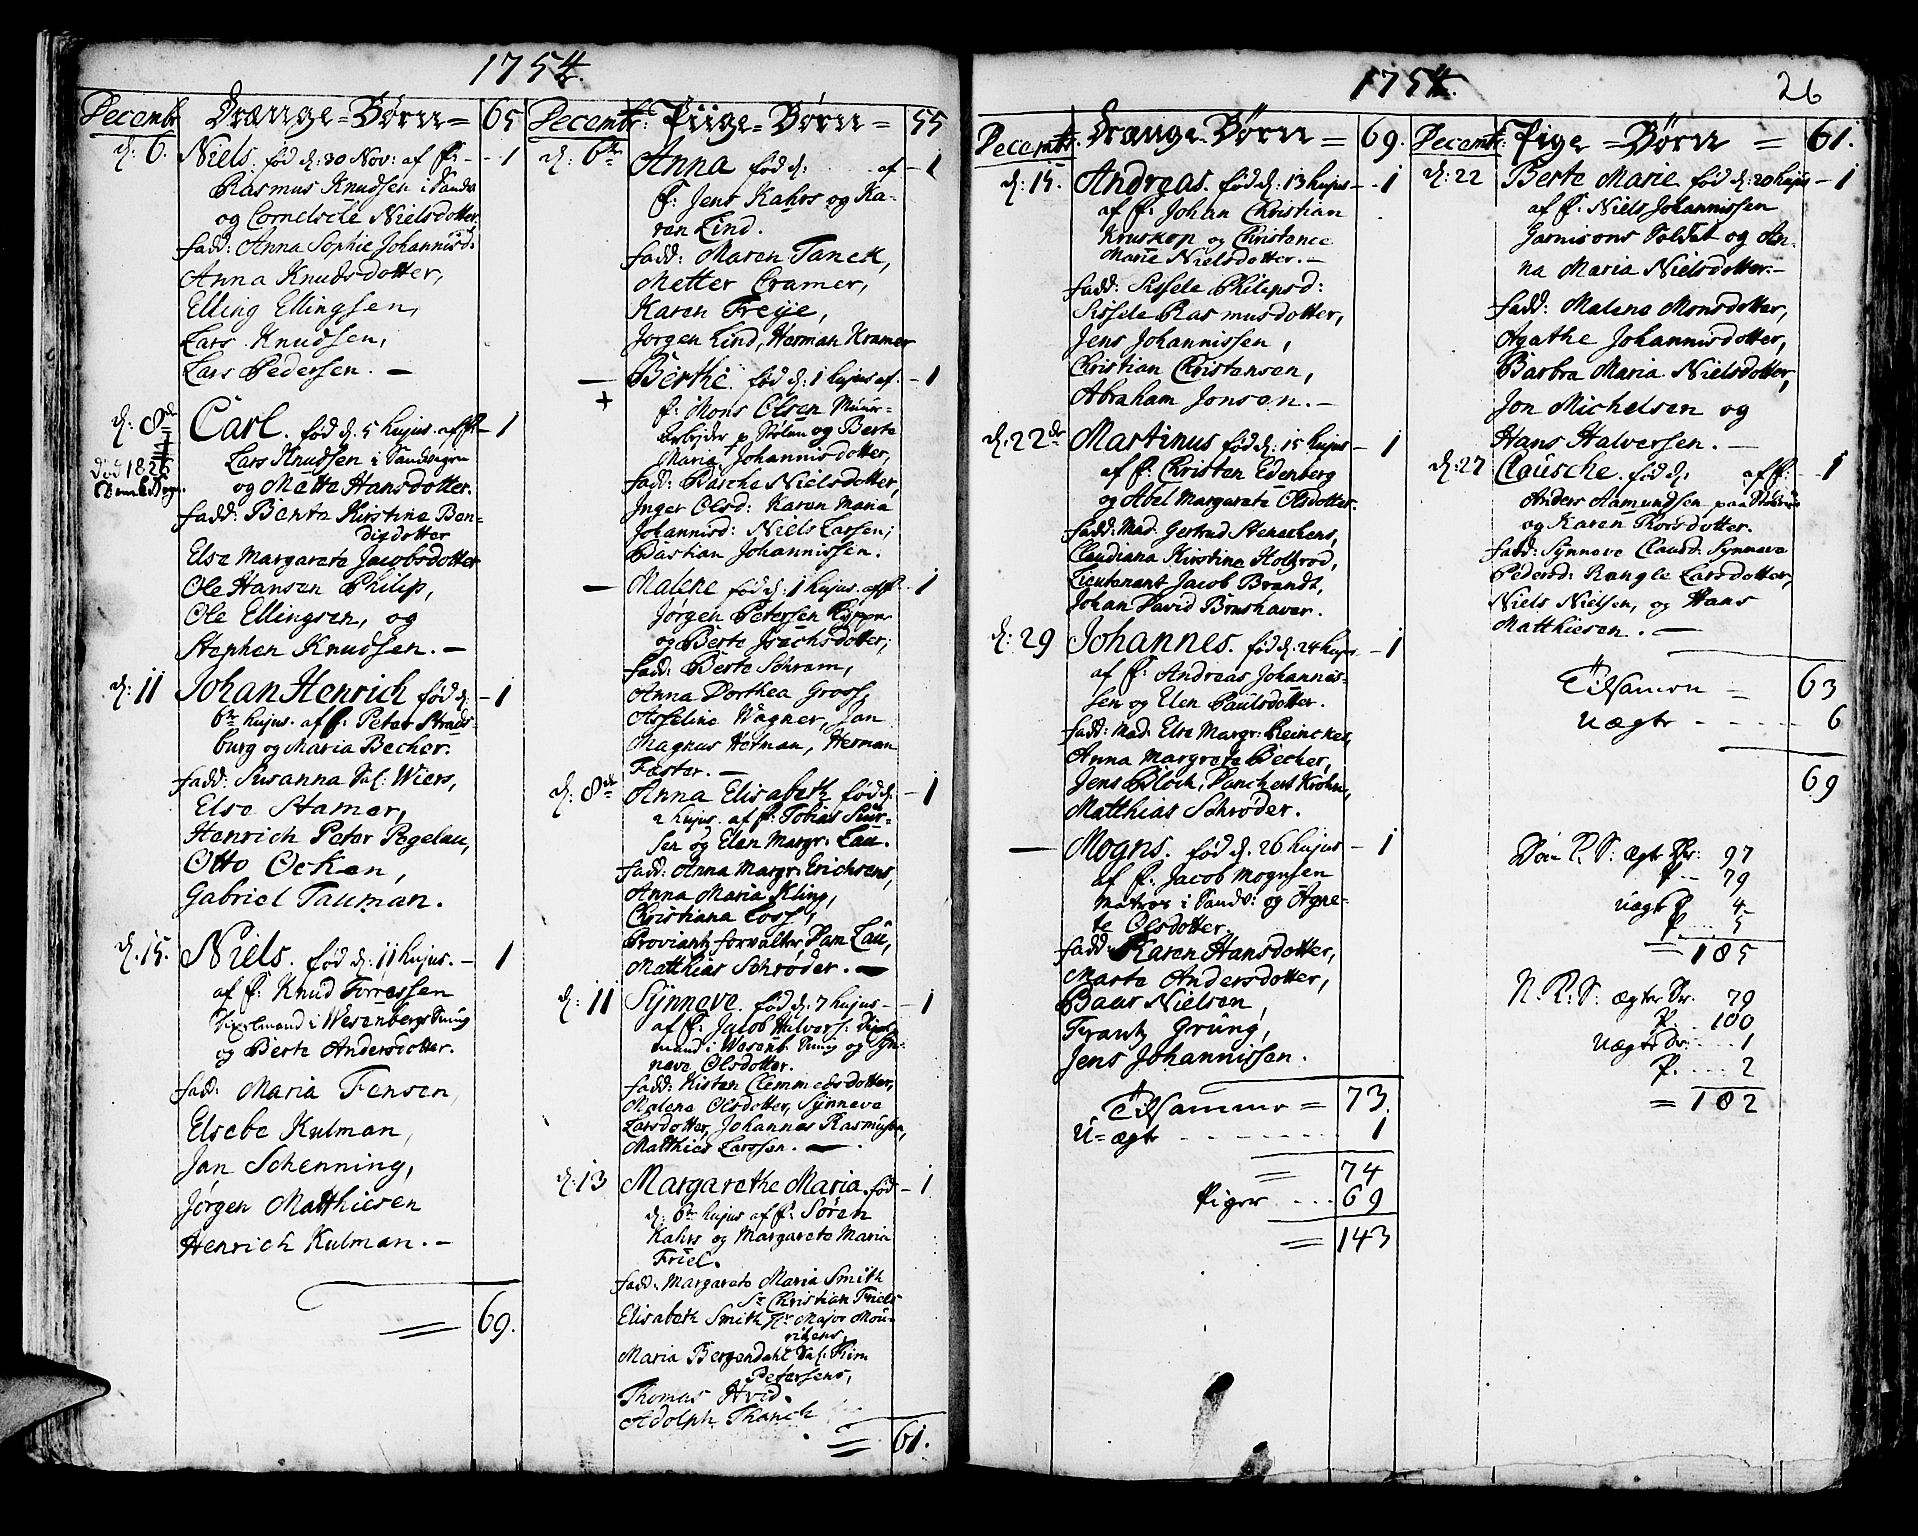 1754.
Decembr.
Drænge-Børn=
65
d: 6.
Niels. fød d: 30 Nov: af F:
1
Rasmus Knudsen i Sandv
og Cornelsche Nielsdotter
fadd: Anna Sophie Johannisd:
Anna Knudsdotter,
Elling Ellingsen,
Lars Knudsen,
Lars Pedersen. —
d: 8de
Carl. fød d. 5 hujus. af F:
1
død 1826
Lars Knudsen i Sandvigen
og Mette Hansdotter.
fadd: Benta Kirstine Ben=
digdotter
Else Margarete Jacobsdotter
Ole Hansen Philip,
Ole Ellingsen, og
Stephen Knudsen. —
d: 11
Johan Henrich fød d.
1
6te hujus. af F: Peter Straus-
burg og Maria Becher.
fadd: Susanna Sal: Wiers,
Else Stamer,
Henrich Peter Pegelau,
Otto Ocken,
Gabriel Tauman.
d. 15.
Niels. fød d: 11 hujus. —
1
af F: Knud Torressen
i Wesenbergs Smug
og Berte Andersdotter.
fad: Maria Fensen,
Elsebe Kulman,
Jan Schenning,
Jørgen Matthiesen
Henrich Kulman. —
= 69.
Decembr:
Piige=Børn=
55
d: 6te
Anna fød d: ..... af
1
F: Jens Kahrs og Ka-
ren Lind.
fadd: Maren Tanck,
Metter Cramer,
Karen Freye,
Jørgen Lind, Herman Kramer
—
+
Berthe. fød d: 1 hujus af.
1
F: Mons Olsen Muur-
arbejder p Stølen og Berte
Maria Johannisdotter,
fadd: Barche Nielsdotter,
Inger Olsd: Karen Maria
Johannisd: Niels Larsen;
Bastian Johannissen.
—
Malene fød d: 1 hujus. af F:
1
Jørgen Petersen
og Berte Isachsdotter;
fadd: Berte Schram,
Anna Dorthea Gross,
Asseline Wagner, Jan
Magnus Hetman, Herman
Faster. —
d: 8de
Anna Elisabeth fød d:
1
2 hujus. af F: Tobias Suur-
sen og Elen Margr: Lau.
fadd: Anna Margr: Erichsens,
Anna Maria Kling,
Christiana Loss,
Proviantz forvalter Dam Lau,
Matthias Schrøder. —
d: 11
Synneve. fød d: 7 hujus —
1
af F: Jacob Halvors:
mand i Wesenb. Smug og Syn-
neve Olsdotter.
fadd: Kisten Clemmedsdotter,
Malene Olsdotter, Synneve
Larsdotter, Johannes Rasmusen,
Matthies Larssen. —
d: 13
Margarethe Maria. fød
1
d: 6te hujus af F: Søren
Kahrs og Margarete Maria
Friel.
fadd: Margarete Maria Smith
Sr Christian Friels
Elisabeth Smith Hr Major Mou-
ritzens,
Maria Bergendahl Sal: Kim
Petersens,
Thomas Hvid.
Adolph Thanch
= 61.
1754.
26
Decembr.
Drænge-Børn =
69.
d: 15.
Andreas. fød d: 13 hujus
1
af F: Johan Christian
Kruskop og Christence
Marie Nielsdotter. —
fadd: Sissele Philipsd:
Sissele Rasmusdotter,
Jens Johannissen,
Christian Christensen,
Abraham Jonsen. —
d. 22de
Martinus fød d: 15 hujus
1
af F: Christen Edenberg
og Abel Margarete Olsdotter.
fadd: Mad: Gertrud Stenechens,
Claudiana Kirstine Holfrod,
Lieutenant Jacob Brandt,
Johan David Brushaver.
d: 29
Johannes. fød d: 24 hujus
1
af F: Andreas Johannis-
sen og Elen Paulsdotter.
fadd: Mad: Else Margr: Reinckes,
Anna Margrete Becher,
Jens Bloch, Danchert Krohn,
Matthias Schrøder.
—
Mogns. fød d. 26 hujus
1
af F: Jacob Mognsen
Matros i Sandv: og Agne-
te Olsdotter.
fadd: Karen Hansdotter,
Marte Andersdotter,
Baar Nielsen,
Frantz Grung,
Jens Johannissen.
Tilsammen = 73.
U=ægte ....... 1
= 74
Piger .... 69
= 143
Decembr:
Pige=Børn =
61.
d: 22
Berte Marie fød d: 20 hujus
1
af F: Niels Johannissen
Garnisons Soldat og An-
na Maria Nielsdotter. —
fadd: Malene Monsdotter,
Agathe Johannisdotter,
Barbra Maria Nielsdotter,
Jon Michelsen og
Hans Halversen. —
d: 27
Clausche. fød d: af F:
1
Anders Aamundsen paa
og Karen Thorsdotter.
fadd: Synneve Clausd: Synneve
Pedersd: Rangle Larsdotter,
Niels Nielsen, og Hans
Matthiesen. —
Tilsamen = 63
Uægte ..... 6
69
Døe P. S: ægte Dr: 97
P. — 79
Uægt D 4
P. .... 5
= 185
N. K. S: ægter Dr. 79
P. .. 100
Uægte Dr: .... 1
P. .... 2
= 182